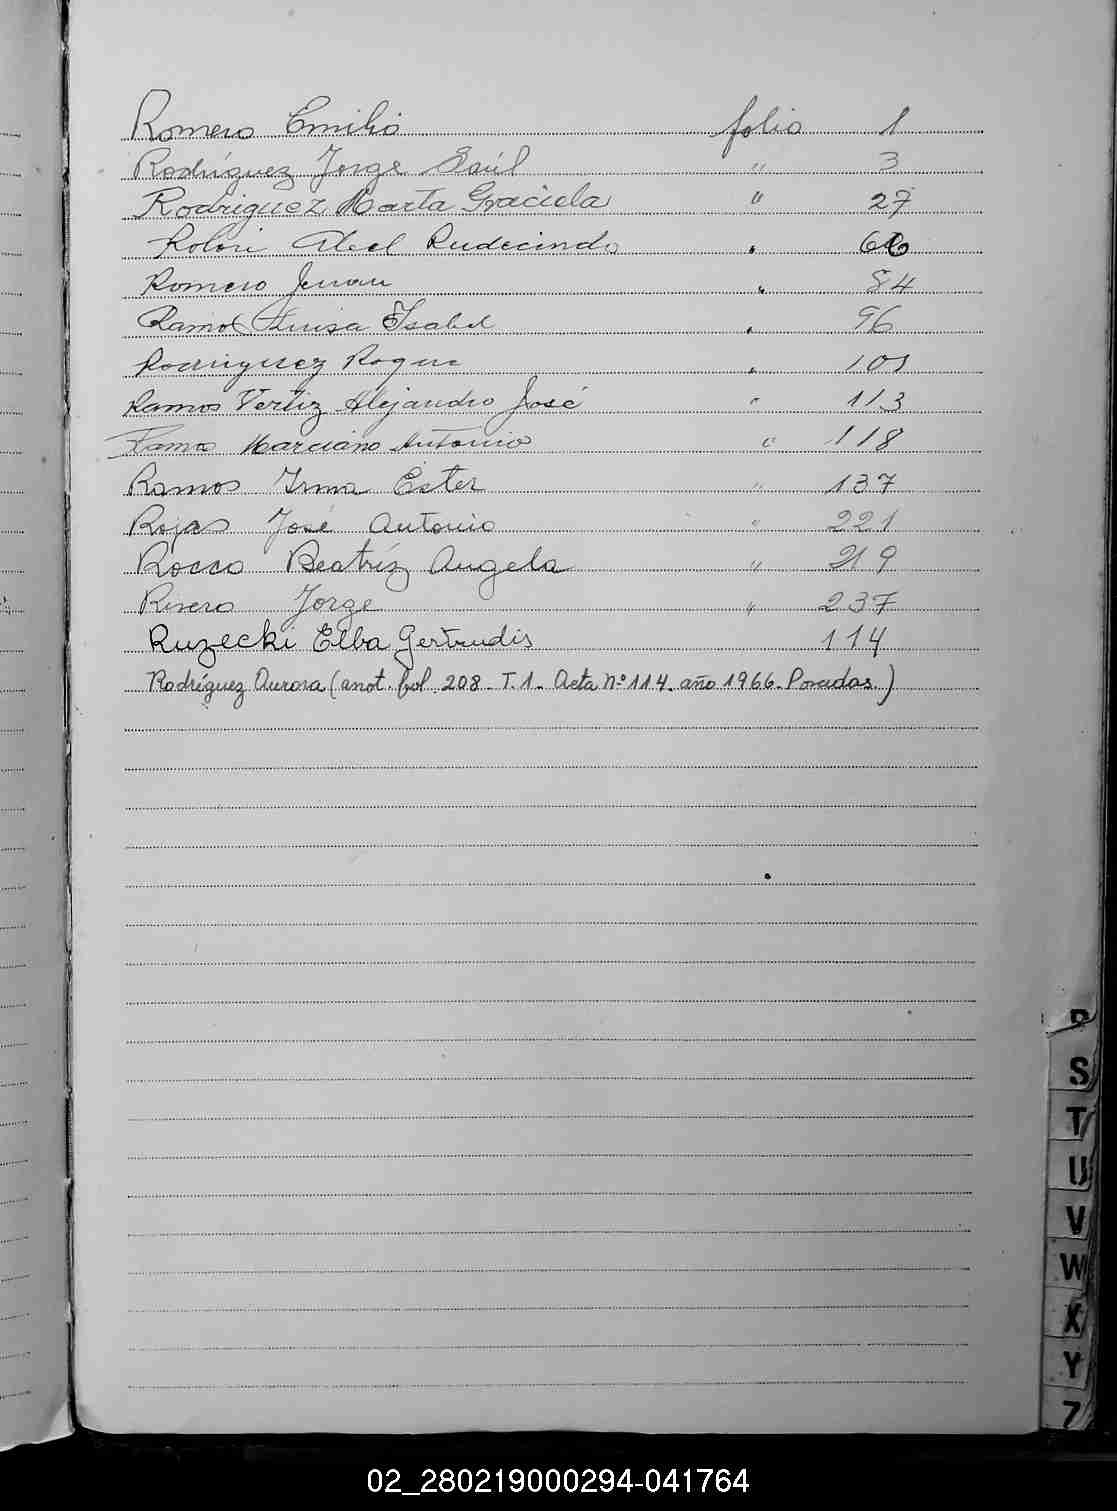 Romero Emilio folio 1
Rodríguez Jorge Saúl " 3
Rodriguez Marta Graciela " 27
Abel Rudecindo "
Romero Juan " 84
Ramos Luisa Isabel " 96
Rodriguez Roque " 101
Ramos Vertiz Alejandro José " 113
Marciano Antonio " 118
Ramos Irma Ester " 137
Rojas José Antonio " 221
Rocco Beatríz Angela " 219
Rivero Jorge " 237
Ruzecki Elba Gertrudis 114
Rodríguez Aurora (anot. fol 208 - T.1 - Acta Nº 114. año 1966. Posadas.)
R
S
T
U
V
W
X
Y
Z
02_280219000294-041764